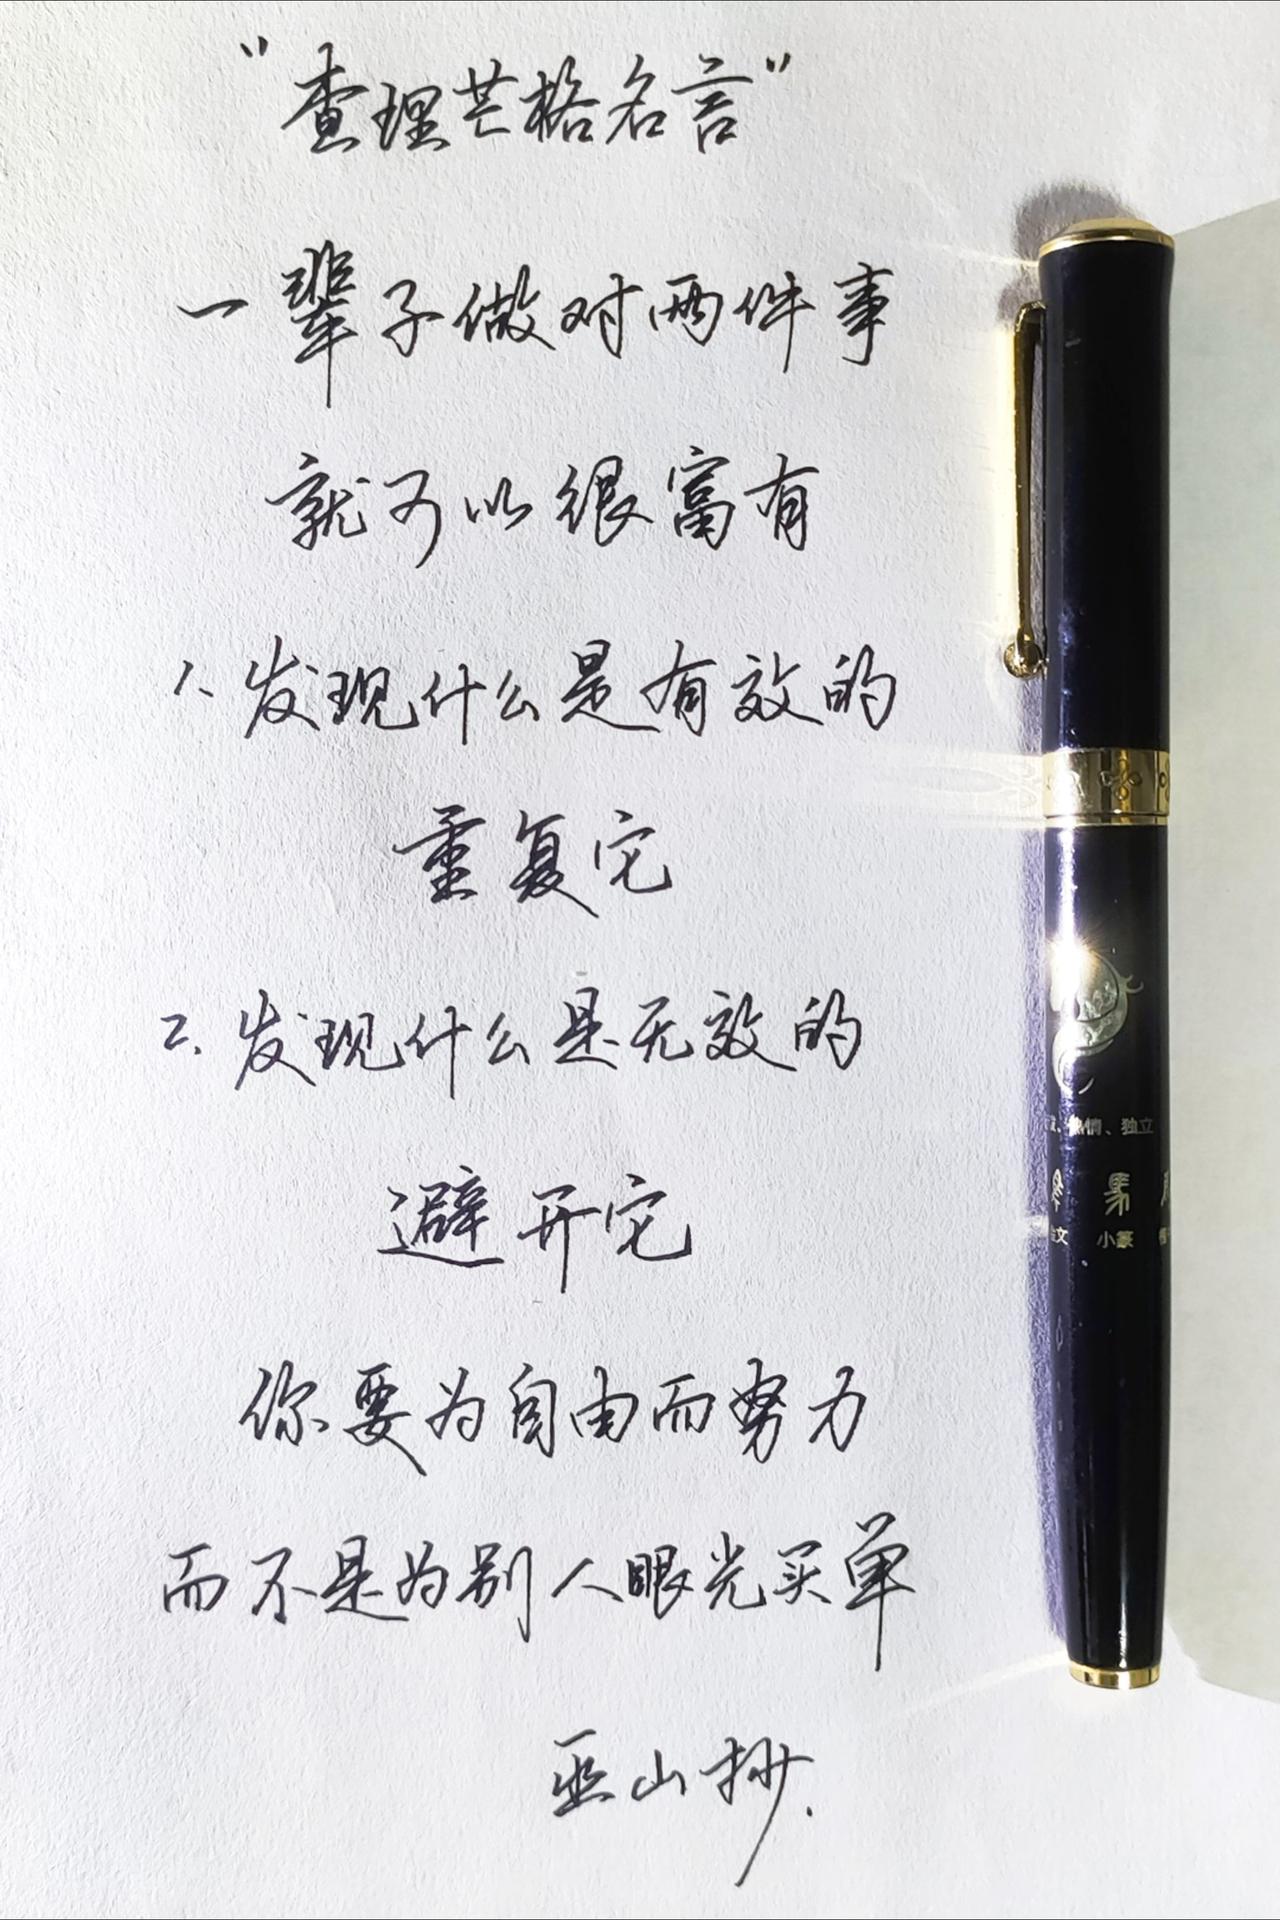 "查理芒格名言"
一辈子做对两件事
就可以很富有
1、发现什么是有效的
重复它
2、发现什么是无效的
避开它
你要为自由而努力
而不是为别人眼光买单
巫山抄.
、热情、独立
馬
文 小篆